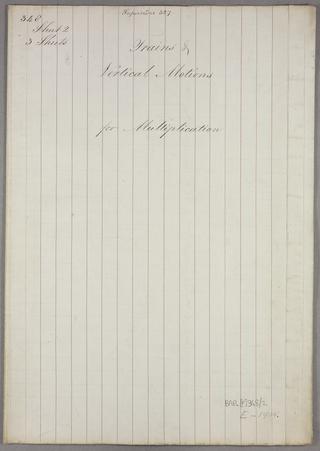 348
Sheet 2
3 Sheets
Supersedes 337
Trains &
Vertical Motions
for Multiplication
BAB/F/348/2
E-1914.